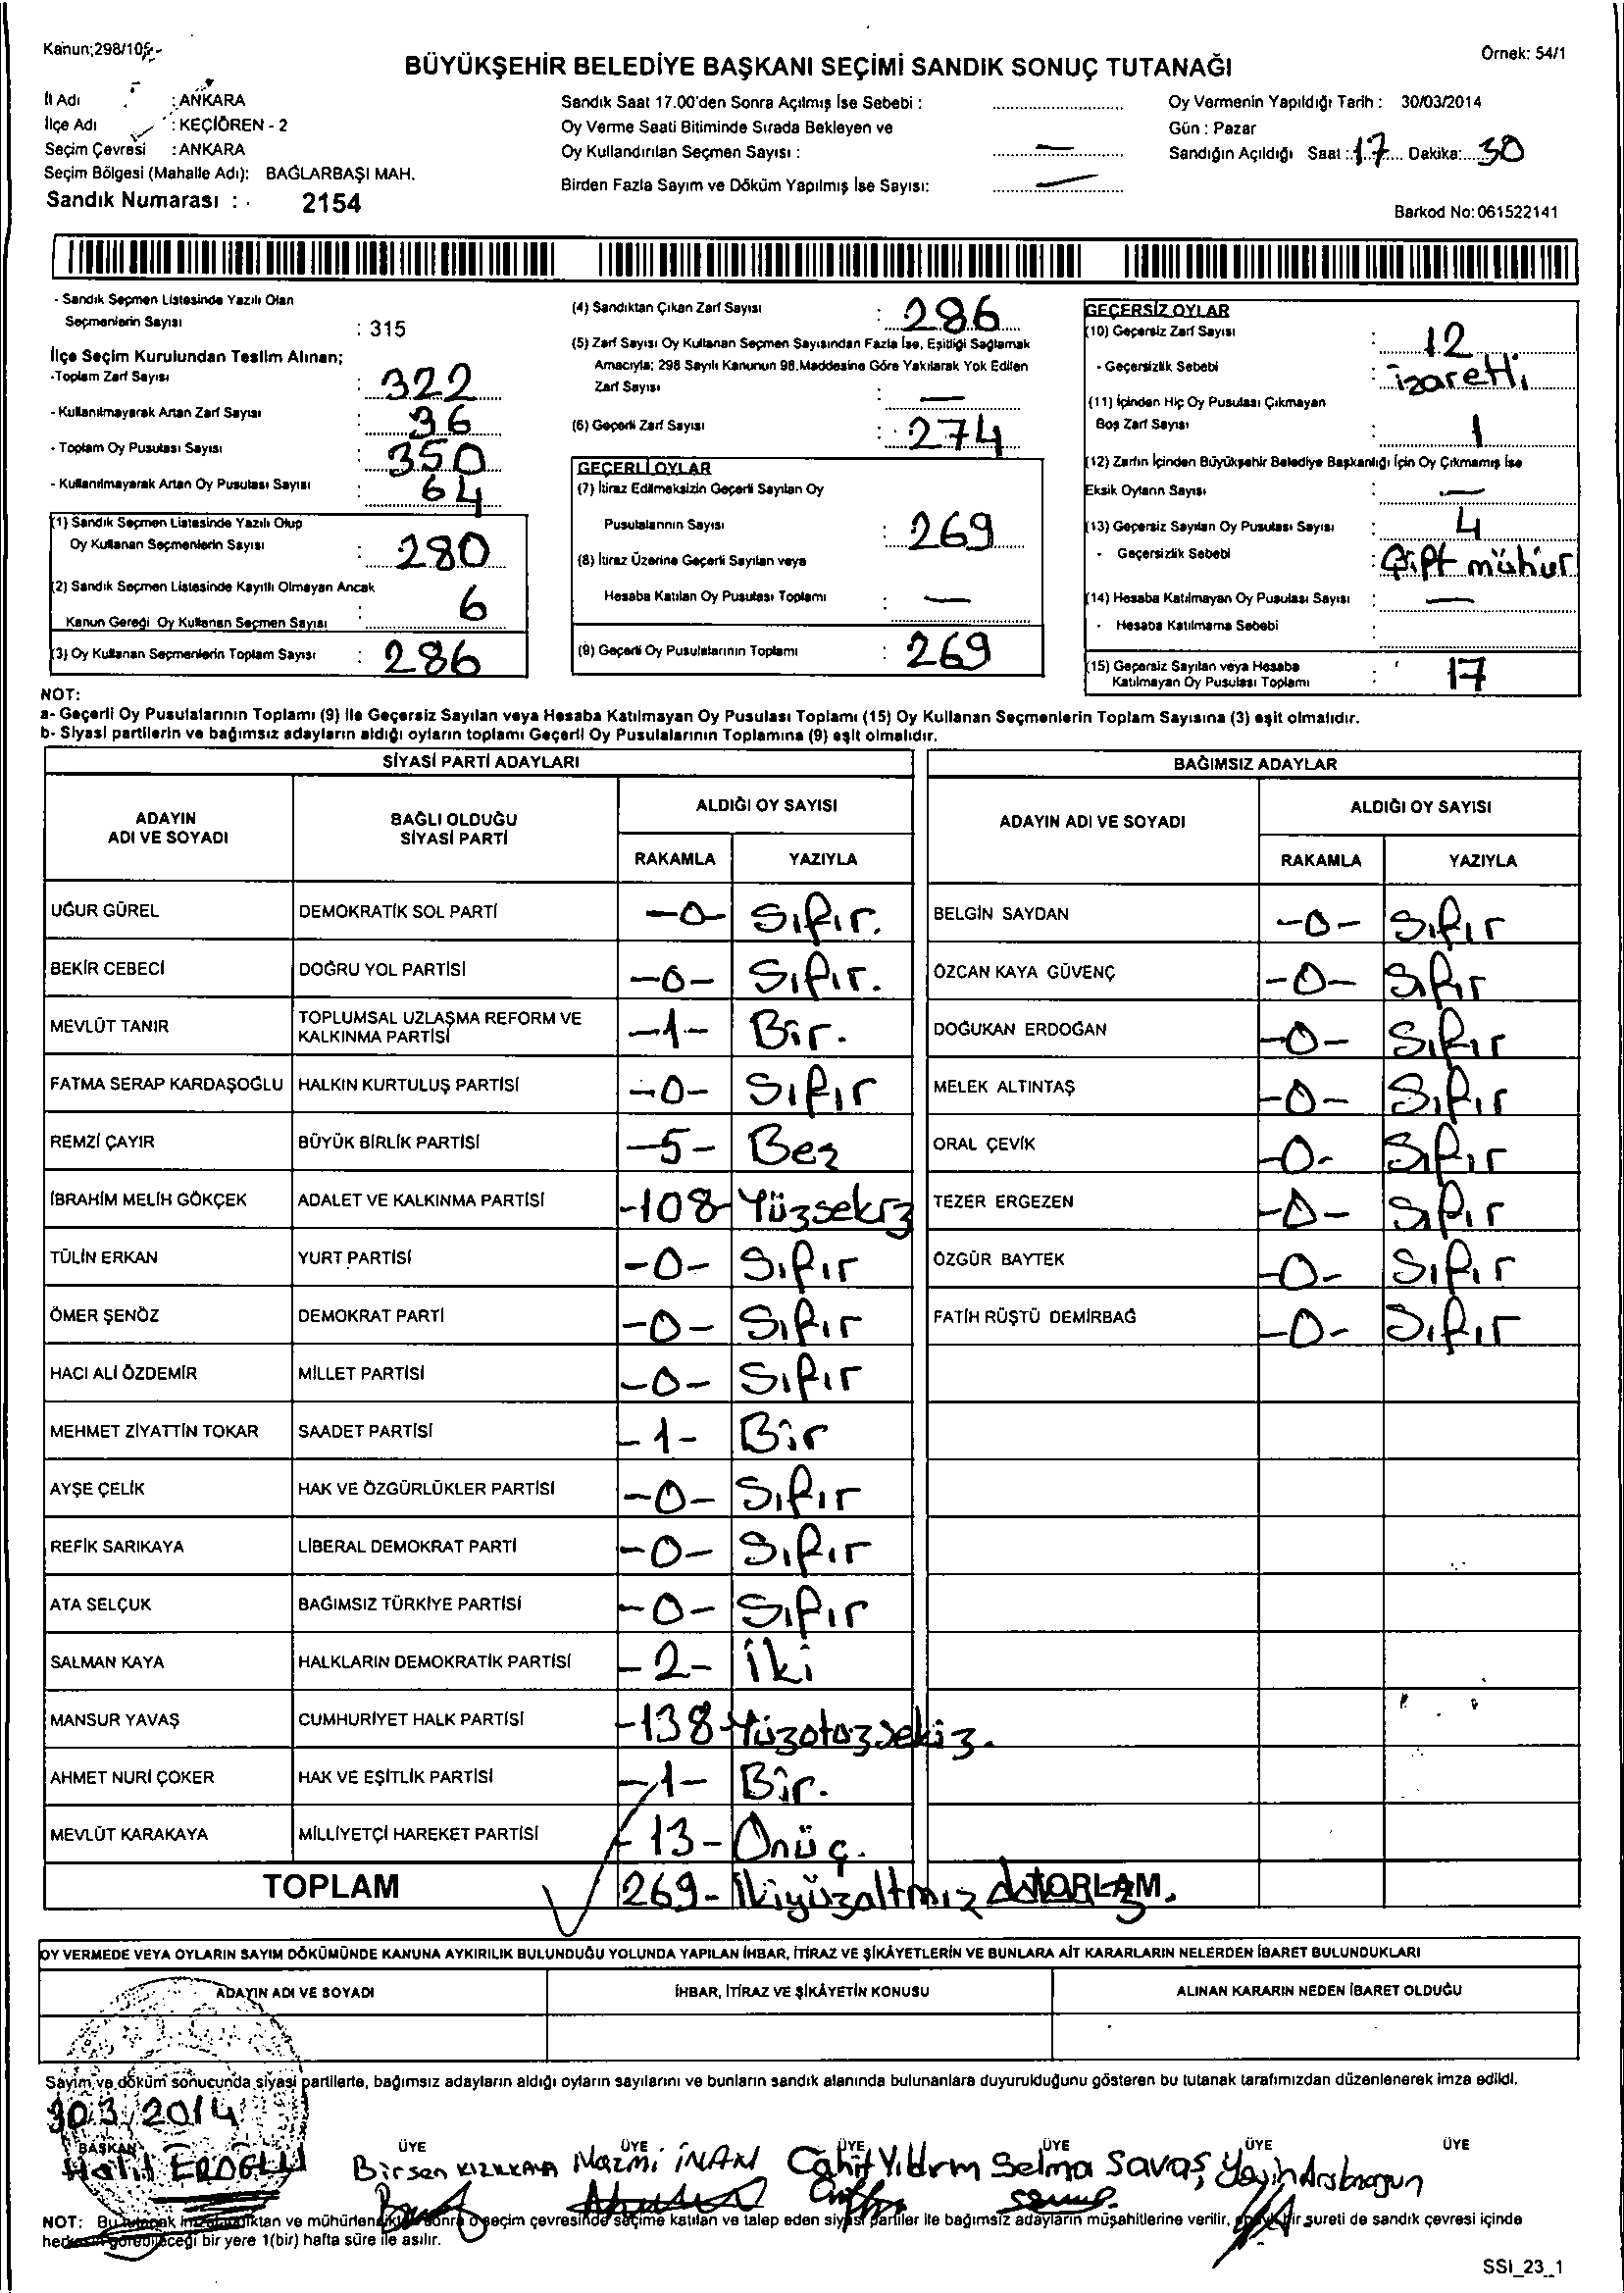 Kanun;298/105-
Örnek: 54/1
BÜYÜKŞEHİR BELEDİYE BAŞKANI SEÇİMİ SANDIK SONUÇ TUTANAĞI
İl Adı : ANKARA
İlçe Adı : KEÇİÖREN - 2
Seçim Çevresi : ANKARA
Seçim Bölgesi (Mahalle Adı): BAĞLARBAŞI MAH.
Sandık Numarası : 2154
Sandık Saat 17.00'den Sonra Açılmış İse Sebebi :
Oy Verme Saati Bitiminde Sırada Bekleyen ve
Oy Kullandırılan Seçmen Sayısı : —
Birden Fazla Sayım ve Döküm Yapılmış İse Sayısı: —
Oy Vermenin Yapıldığı Tarih : 30/03/2014
Gün : Pazar
Sandığın Açıldığı Saat : 17 Dakika: 30
Barkod No: 061522141
- Sandık Seçmen Listesinde Yazılı Olan
Seçmenlerin Sayısı : 315
İlçe Seçim Kurulundan Teslim Alınan;
-Toplam Zarf Sayısı : 322
- Kullanılmayarak Artan Zarf Sayısı : 36
- Toplam Oy Pusulası Sayısı : 350
- Kullanılmayarak Artan Oy Pusulası Sayısı : 64
(1) Sandık Seçmen Listesinde Yazılı Olup
Oy Kullanan Seçmenlerin Sayısı : 280
(2) Sandık Seçmen Listesinde Kayıtlı Olmayan Ancak
Kanun Gereği Oy Kullanan Seçmen Sayısı : 6
(3) Oy Kullanan Seçmenlerin Toplam Sayısı : 286
(4) Sandıktan Çıkan Zarf Sayısı : 286
(5) Zarf Sayısı Oy Kullanan Seçmen Sayısından Fazla İse, Eşitliği Sağlamak
Amacıyla; 298 Sayılı Kanunun 98.Maddesine Göre Yakılarak Yok Edilen
Zarf Sayısı : —
(6) Geçerli Zarf Sayısı : 274
GEÇERLİ OYLAR
(7) İtiraz Edilmeksizin Geçerli Sayılan Oy
Pusulalarının Sayısı : 269
(8) İtiraz Üzerine Geçerli Sayılan veya
Hesaba Katılan Oy Pusulası Toplamı : —
(9) Geçerli Oy Pusulalarının Toplamı : 269
GEÇERSİZ OYLAR
(10) Geçersiz Zarf Sayısı : 12
- Geçersizlik Sebebi : izaretli
(11) İçinden Hiç Oy Pusulası Çıkmayan
Boş Zarf Sayısı : 1
(12) Zarfın İçinden Büyükşehir Belediye Başkanlığı İçin Oy Çıkmamış İse
Eksik Oyların Sayısı : —
(13) Geçersiz Sayılan Oy Pusulası Sayısı : 4
- Geçersizlik Sebebi : Çift mühür
(14) Hesaba Katılmayan Oy Pusulası Sayısı : —
- Hesaba Katılmama Sebebi :
(15) Geçersiz Sayılan veya Hesaba
Katılmayan Oy Pusulası Toplamı : 17
NOT:
a- Geçerli Oy Pusulalarının Toplamı (9) ile Geçersiz Sayılan veya Hesaba Katılmayan Oy Pusulası Toplamı (15) Oy Kullanan Seçmenlerin Toplam Sayısına (3) eşit olmalıdır.
b- Siyasi partilerin ve bağımsız adayların aldığı oyların toplamı Geçerli Oy Pusulalarının Toplamına (9) eşit olmalıdır.
SİYASİ PARTİ ADAYLARI
ADAYIN ADI VE SOYADI BAĞLI OLDUĞU SİYASİ PARTİ ALDIĞI OY SAYISI
RAKAMLA YAZIYLA
UĞUR GÜREL DEMOKRATİK SOL PARTİ -0- Sıfır.
BEKİR CEBECİ DOĞRU YOL PARTİSİ -0- Sıfır.
MEVLÜT TANIR TOPLUMSAL UZLAŞMA REFORM VE KALKINMA PARTİSİ -1- Bir.
FATMA SERAP KARDAŞOĞLU HALKIN KURTULUŞ PARTİSİ -0- Sıfır
REMZİ ÇAYIR BÜYÜK BİRLİK PARTİSİ -5- Bez
İBRAHİM MELİH GÖKÇEK ADALET VE KALKINMA PARTİSİ -108- Yüzsekiz
TÜLİN ERKAN YURT PARTİSİ -0- Sıfır
ÖMER ŞENÖZ DEMOKRAT PARTİ -0- Sıfır
HACI ALİ ÖZDEMİR MİLLET PARTİSİ -0- Sıfır
MEHMET ZİYATTİN TOKAR SAADET PARTİSİ -1- Bir
AYŞE ÇELİK HAK VE ÖZGÜRLÜKLER PARTİSİ -0- Sıfır
REFİK SARIKAYA LİBERAL DEMOKRAT PARTİ -0- Sıfır
ATA SELÇUK BAĞIMSIZ TÜRKİYE PARTİSİ -0- Sıfır
SALMAN KAYA HALKLARIN DEMOKRATİK PARTİSİ -2- İki
MANSUR YAVAŞ CUMHURİYET HALK PARTİSİ -138- Yüzotozsekiz.
AHMET NURİ ÇOKER HAK VE EŞİTLİK PARTİSİ -1- Bir.
MEVLÜT KARAKAYA MİLLİYETÇİ HAREKET PARTİSİ -13- Onüç.
TOPLAM 269- İkiyüzaltmız dokuz.
BAĞIMSIZ ADAYLAR
ADAYIN ADI VE SOYADI ALDIĞI OY SAYISI
RAKAMLA YAZIYLA
BELGİN SAYDAN -0- Sıfır
ÖZCAN KAYA GÜVENÇ -0- Sıfır
DOĞUKAN ERDOĞAN -0- Sıfır
MELEK ALTINTAŞ -0- Sıfır
ORAL ÇEVİK -0- Sıfır
TEZER ERGEZEN -0- Sıfır
ÖZGÜR BAYTEK -0- Sıfır
FATİH RÜŞTÜ DEMİRBAĞ -0- Sıfır
TOPLAM
OY VERMEDE VEYA OYLARIN SAYIM DÖKÜMÜNDE KANUNA AYKIRILIK BULUNDUĞU YOLUNDA YAPILAN İHBAR, İTİRAZ VE ŞİKÂYETLERİN VE BUNLARA AİT KARARLARIN NELERDEN İBARET BULUNDUKLARI
ADAYIN ADI VE SOYADI İHBAR, İTİRAZ VE ŞİKÂYETİN KONUSU ALINAN KARARIN NEDEN İBARET OLDUĞU
Sayım ve döküm sonucunda siyasi partilerle, bağımsız adayların aldığı oyların sayılarını ve bunların sandık alanında bulunanlara duyurulduğunu gösteren bu tutanak tarafımızdan düzenlenerek imza edildi.
30.3/2014
BAŞKAN ÜYE ÜYE ÜYE ÜYE ÜYE ÜYE
Halil EROĞLU Birsen KIZILKAYA Nazmi İNAN Cahit Yıldırım Selma Savaş
NOT: Bu tutanak imzalandıktan ve mühürlendikten sonra o seçim çevresinde seçime katılan ve talep eden siyasi partiler ile bağımsız adayların müşahitlerine verilir, bir sureti de sandık çevresi içinde
herkesin görebileceği bir yere 1(bir) hafta süre ile asılır.
SSI_23_1